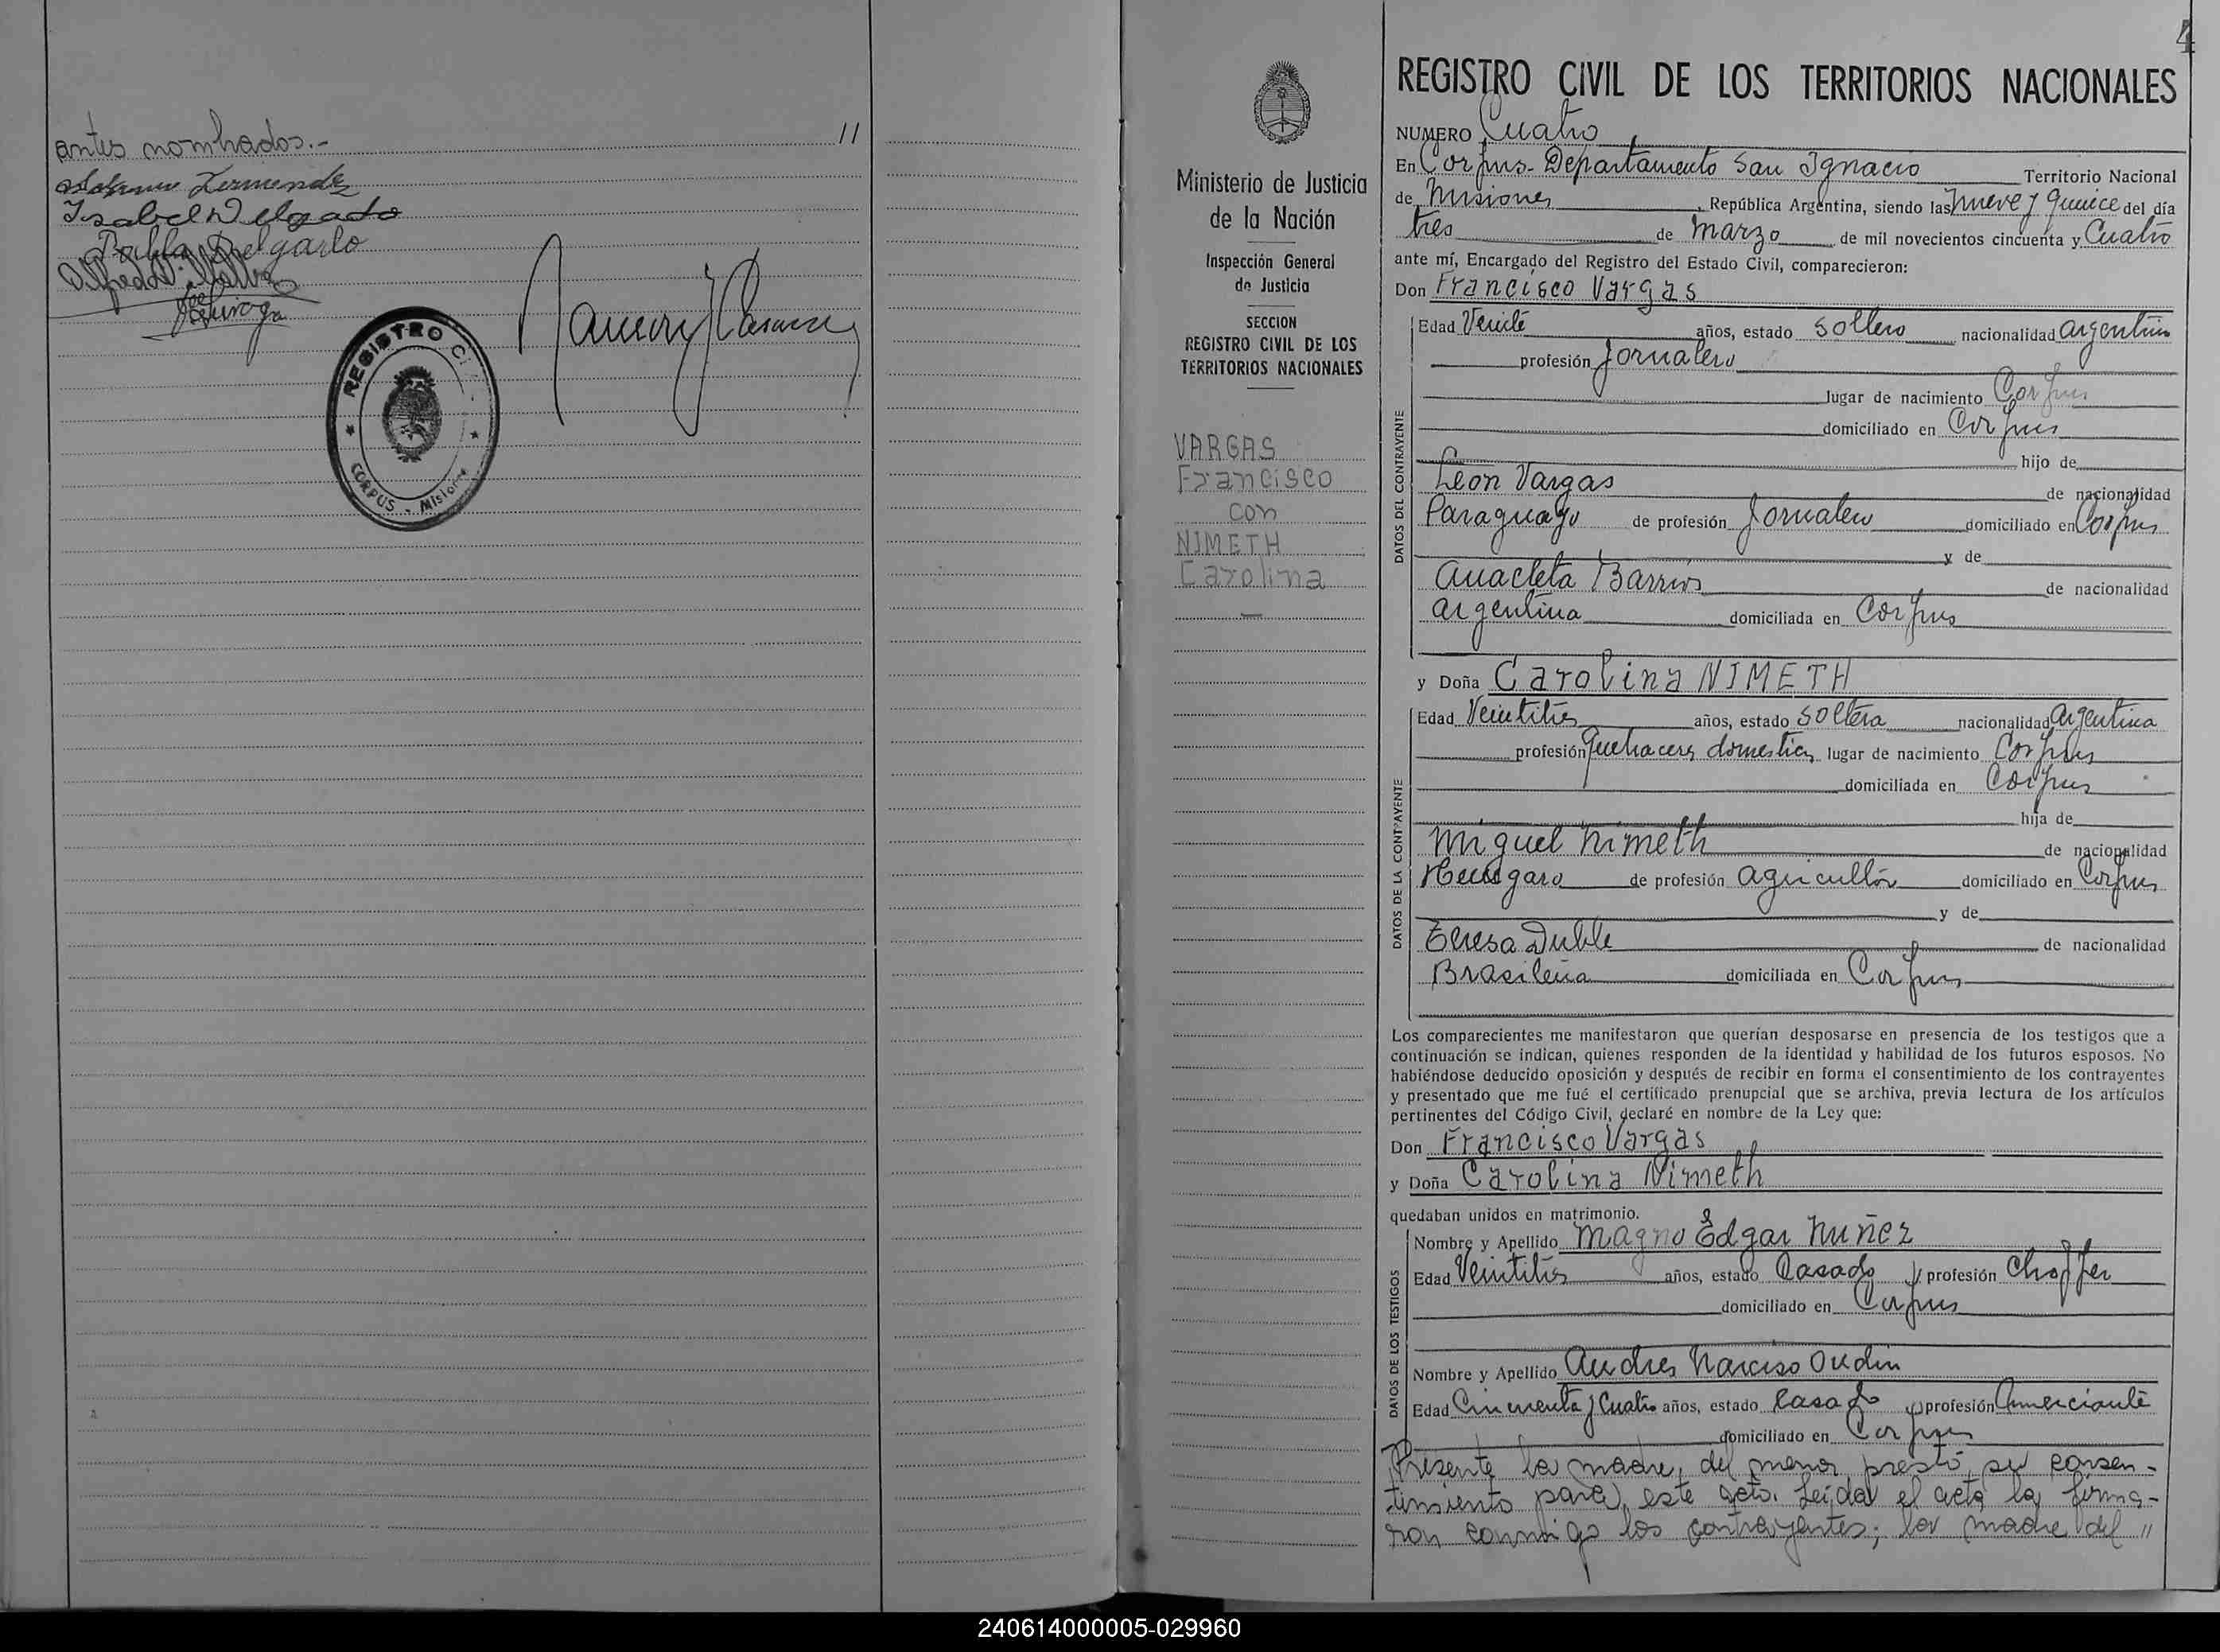 antes nombrados.- //
Isabel Delgado
Delgado
Quiroga
REGISTRO CI
CORPUS - Misiones
4
REGISTRO CIVIL DE LOS TERRITORIOS NACIONALES
Ministerio de Justicia
de la Nación
Inspección General
de Justicia
SECCION
REGISTRO CIVIL DE LOS
TERRITORIOS NACIONALES
VARGAS
Francisco
con
NIMETH
Carolina
NUMERO Cuatro
En Corpus- Departamento San Ignacio Territorio Nacional
de Misiones, República Argentina, siendo las nueve y quince del día
tres de marzo de mil novecientos cincuenta y Cuatro
ante mí, Encargado del Registro del Estado Civil, comparecieron:
Don Francisco Vargas
DATOS DEL CONTRAYENTE
Edad Veinte años, estado soltero nacionalidad argentino
profesión Jornalero
lugar de nacimiento Corpus
domiciliado en Corpus
hijo de
Leon Vargas de nacionalidad
Paraguayo de profesión Jornalero domiciliado en Corpus
y de
Anacleta Barrios de nacionalidad
argentina domiciliada en Corpus
y Doña Carolina NIMETH
DATOS DE LA CONTRAYENTE
Edad Veintitres años, estado soltera nacionalidad Argentina
profesión Quehaceres domestics lugar de nacimiento Corpus
domiciliada en Corpus
hija de
Miguel Nimeth de nacionalidad
Hungaro de profesión agricultor domiciliado en Corpus
y de
Teresa Duble de nacionalidad
Brasileña domiciliada en Corpus
Los comparecientes me manifestaron que querían desposarse en presencia de los testigos que a
continuación se indican, quienes responden de la identidad y habilidad de los futuros esposos. No
habiéndose deducido oposición y después de recibir en forma el consentimiento de los contrayentes
y presentado que me fué el certificado prenupcial que se archiva, previa lectura de los artículos
pertinentes del Código Civil, declaré en nombre de la Ley que:
Don Francisco Vargas
y Doña Carolina Nimeth
quedaban unidos en matrimonio.
DATOS DE LOS TESTIGOS
Nombre y Apellido Magno Edgar Nuñez
Edad Veintitrés años, estado Casado y profesión Choffer
domiciliado en Corpus
Nombre y Apellido Andres Narciso Oudin
Edad Cincuenta y Cuatro años, estado Casado y profesión Comerciante
domiciliado en Corpus
Presente la madre del menor prestó su consen-
timiento para este acto. Leida el acta la firma-
ron conmigo los contrayentes; la madre del //
240614000005-029960